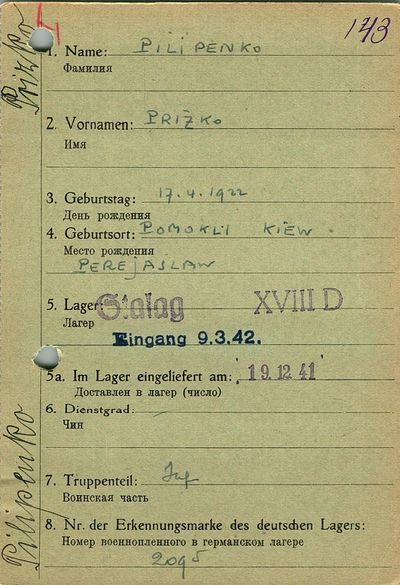 143
1. Name: PILIPENKO
Фамилия
2. Vornamen: PRIŻKO
Имя
3. Geburtstag: 17.4.1922
День рождения
4. Geburtsort: POMOKLI KIEW.
Место рождения
PEREJASLAW
5. Lager: Stalag XVIII D
Лагерь
Eingang 9.3.42.
5a. Im Lager eingeliefert am: 19.12.41
Доставлен в лагерь (число)
6. Dienstgrad:
Чин
7. Truppenteil: Inf
Воинская часть
8. Nr. der Erkennungsmarke des deutschen Lagers:
Номер военнопленного в германском лагере
2095
Prizko
Pilipenko